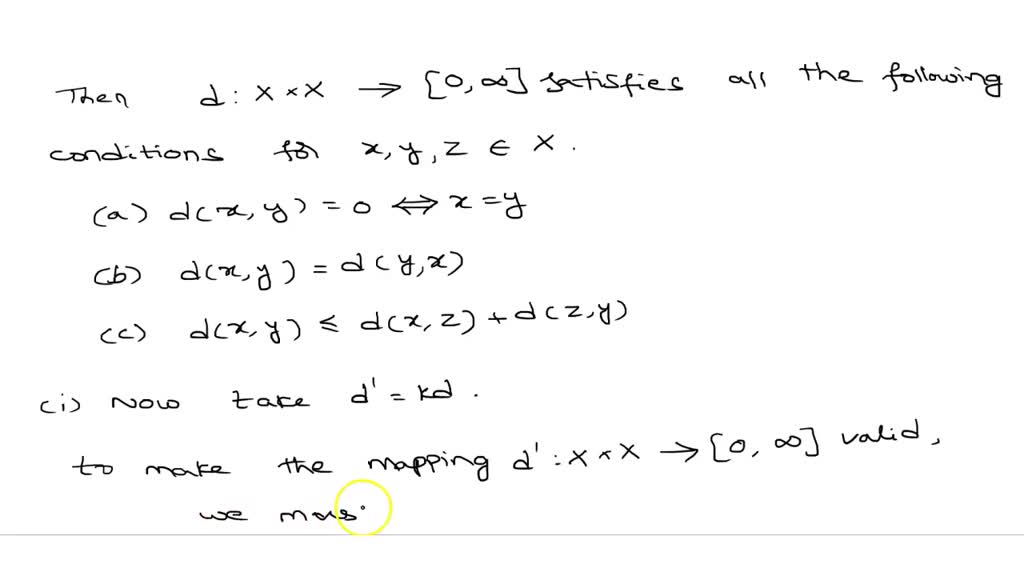 Then d : X × X → [0, ∞] satisfies all the following
conditions for x, y, z ∈ X.
(a) d(x, y) = 0 ⟺ x = y
(b) d(x, y) = d(y, x)
(c) d(x, y) ≤ d(x, z) + d(z, y)
(i) Now take d' = kd.
to make the mapping d' : X × X → [0, ∞] valid,
we mus